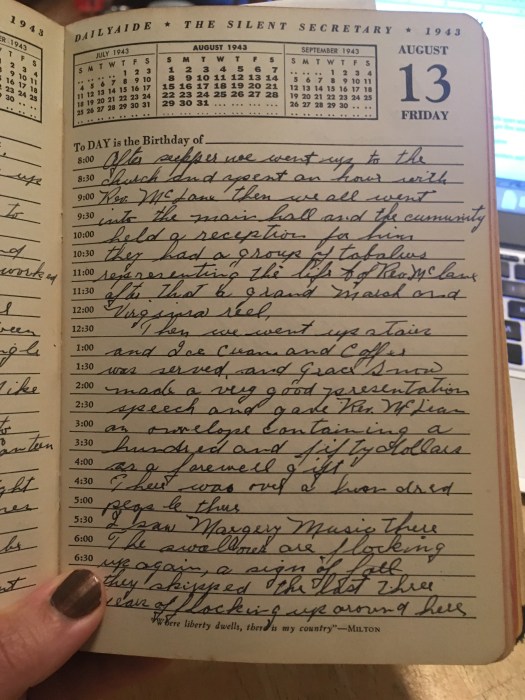 1943
DAILYAIDE ★ THE SILENT SECRETARY ★ 1943
JULY 1943
S M T W T F S
.. .. .. .. 1 2 3
4 5 6 7 8 9 10
11 12 13 14 15 16 17
18 19 20 21 22 23 24
25 26 27 28 29 30 31
AUGUST 1943
S M T W T F S
1 2 3 4 5 6 7
8 9 10 11 12 13 14
15 16 17 18 19 20 21
22 23 24 25 26 27 28
29 30 31 .. .. .. ..
SEPTEMBER 1943
S M T W T F S
.. .. .. 1 2 3 4
5 6 7 8 9 10 11
12 13 14 15 16 17 18
19 20 21 22 23 24 25
26 27 28 29 30 .. ..
AUGUST
13
FRIDAY
To DAY is the Birthday of
8:00 After supper we went up to the
8:30 church and spent an hour with
9:00 Rev. McLane then we all went
9:30 into the main hall and the cumunity
10:00 held a reception for him
10:30 they had a group of tabalus
11:00 representing the life of Rev McLane
11:30 after that a grand march and
12:00 Virginia reel,
12:30 Then we went up stairs
1:00 and Ice Cream and Coffee
1:30 was served, and Grace Snow
2:00 made a very good presentation
2:30 speech and gave Rev. McLean
3:00 an onvelope containing a
3:30 hundred and fifty dollars
4:00 as a farewell gift
4:30 There was over a hundred
5:00 people there
5:30 I saw Margery Music there
6:00 The swallows are flocking
6:30 up again, a sign of fall
they skipped the last three
years of flocking up around here
"Where liberty dwells, there is my country"—MILTON